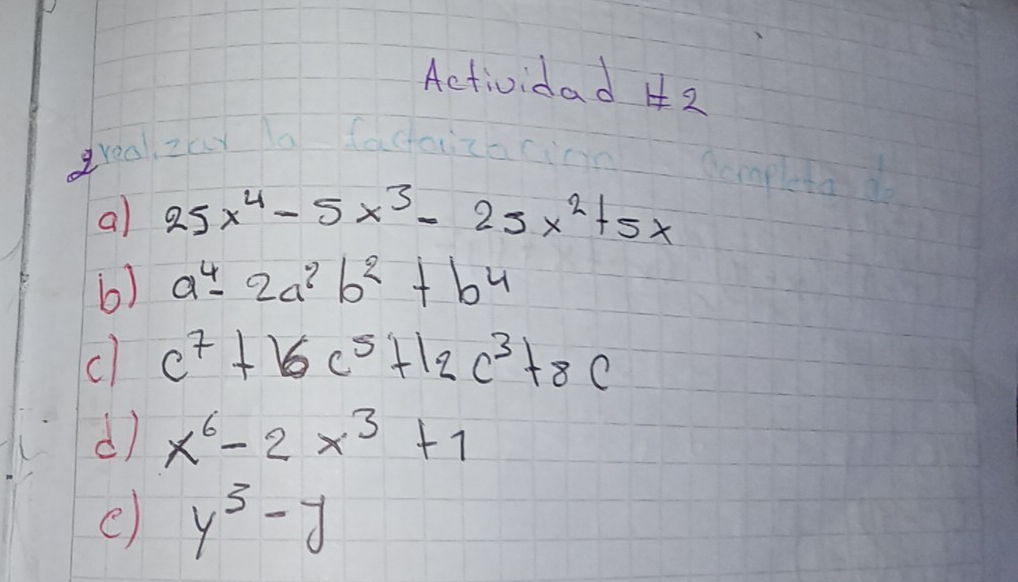 Actividad #2
realizar la factorización completa de
a) 25x⁴ - 5x³ - 25x² + 5x
b) a⁴ - 2a²b² + b⁴
c) c⁷ + 16c⁵ + 12c³ + 8c
d) x⁶ - 2x³ + 1
e) y³ - y